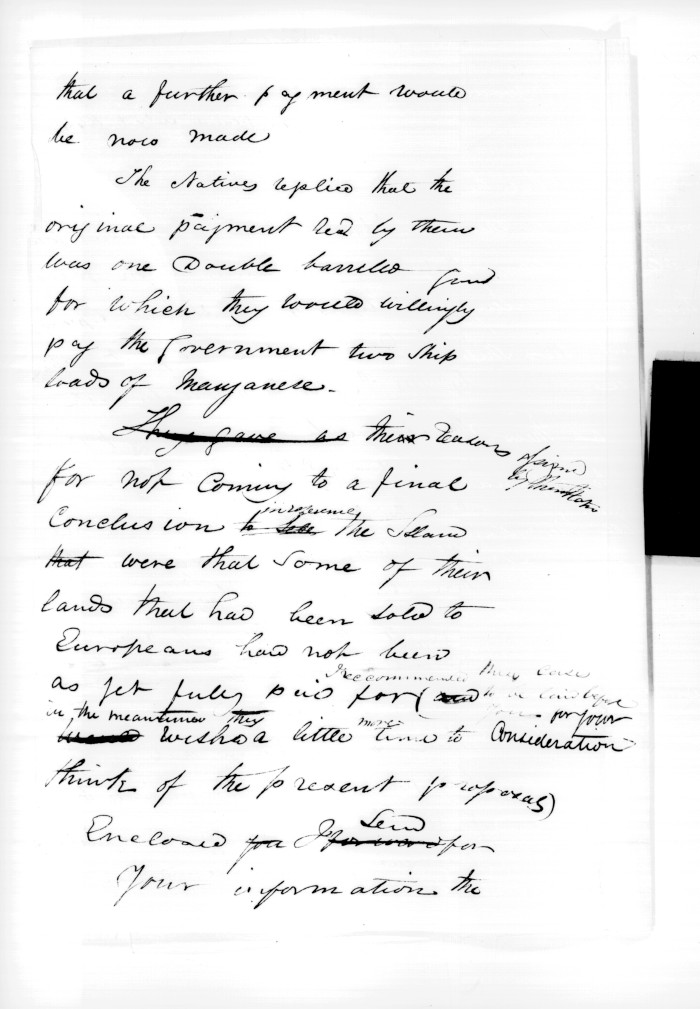 that a further payment would
be now made
The Natives replied that the
original payment red by them
was one Double barreled gun
for which they would willingly
pay the Government two Ship
loads of Manganese.
They gave as their Reasons
for not Coming to a final
Conclusion to in reference the Island
that were that Some of their
lands that had been sold to
Europeans had not been
I recommended their case
as yet fully paid for (and to be laid before
in the meantime they you for your
would wished a little more time to Consideration
think of the present proposal)
Send
Enclosed you I forward for
Your information the